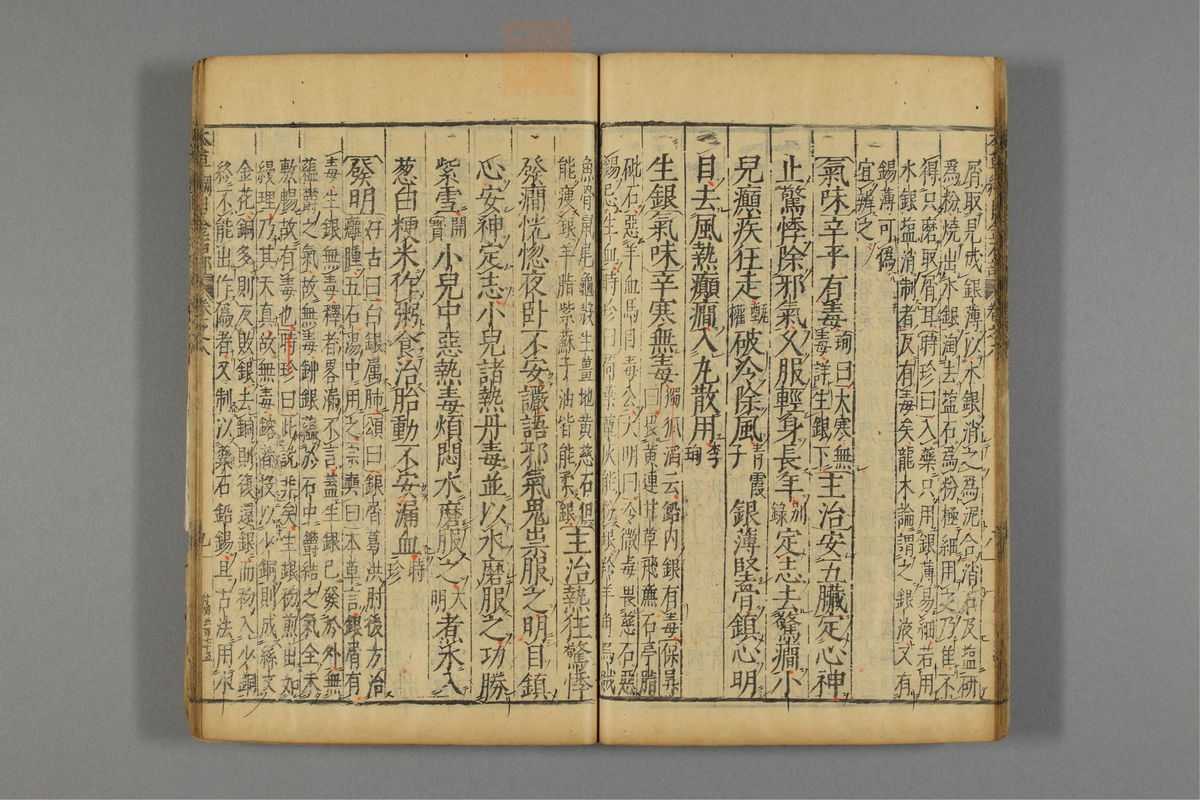 屑取見成銀薄以水銀消之為泥合消石及鹽研
為粉燒出水銀淘去鹽石為粉極細用之乃佳不
得只磨取屑耳時珍曰入藥只用銀薄易細若用
水銀盐消制者反有毒矣龍木論謂之銀液又有
錫薄可偽
宜辨之
氣味辛平有毒珣曰大寒無
毒詳生銀下主治安五臟定心神
止驚悸除邪氣久服輕身長年別
錄定志去驚癇小
兒癲疾狂走甄
權破冷除風青霞
子銀薄堅骨鎮心明
目去風熱癲癇入丸散用李
珣
生銀氣味辛寒無毒獨孤滔云鉛內銀有毒保昇
曰畏黃連甘草飛廉石亭脂
砒石惡羊血馬目毒公大明曰冷微毒畏慈石惡
錫忌生血時珍曰荷葉蕈灰能粉銀羚羊角烏賊
魚骨鼠尾龜殼生薑地黃慈石俱
能瘦銀羊脂紫蘇子油皆能柔銀主治熱狂驚悸
發癇恍惚夜卧不安讝語邪氣鬼祟服之明目鎮
心安神定志小兒諸熱丹毒並以水磨服之功勝
紫雪開
寶小兒中惡熱毒煩悶水磨服之大
明煮水入
葱白粳米作粥食治胎動不安漏血時
珍
發明好古曰白銀屬肺頌曰銀屑葛洪肘後方治
癰腫五石湯中用之宗奭曰本草言銀屑有
毒生銀無毒釋者畧漏不言蓋生銀已發於外無
蘊鬱之氣故無毒鉚銀蘊於石中鬱結之氣全未
敷暢故有毒也時珍曰此說非矣生銀初煎出如
縵理乃其天真故無毒鎔者投以少銅則成絲文
金花銅多則反敗銀去銅則復還銀而初入少銅
終不能出作偽者又制以藥石鉛錫且古法用水